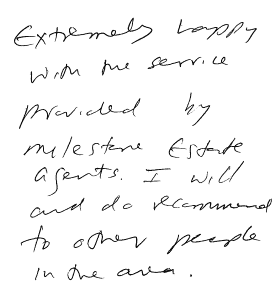 Extremely happy
with the service
provided by
Milestone Estate
Agents. I will
and do recommend
to other people
in the area.